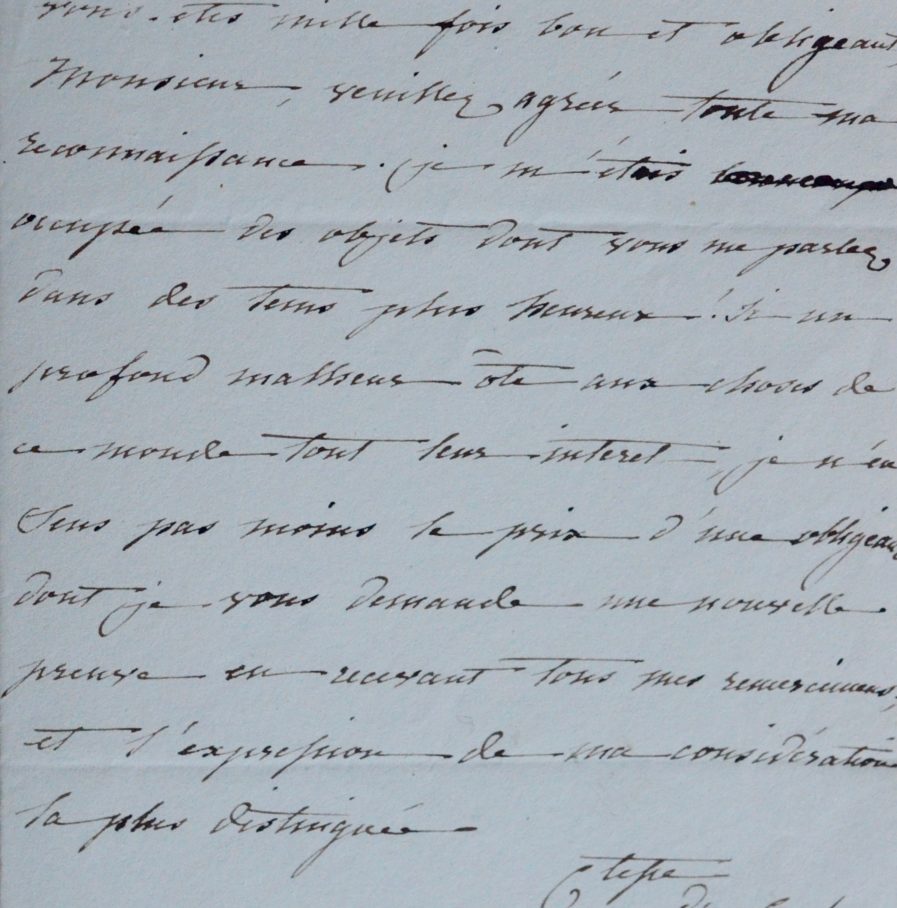 vous êtes mille fois bon et obligeant,
Monsieur, veuillez agréer toute ma
reconnaissance. je m'étais
occupée des objets dont vous me parlez
dans des tems plus heureux! Si un
profond malheur ôte aux choses de
ce monde tout leur interet, je n'en
Sens pas moins le prix d'une obligean
dont je vous demande une nouvelle
preuve en recevant tous mes remercimens,
et l'expression de ma considération
la plus distinguée
Ctesse